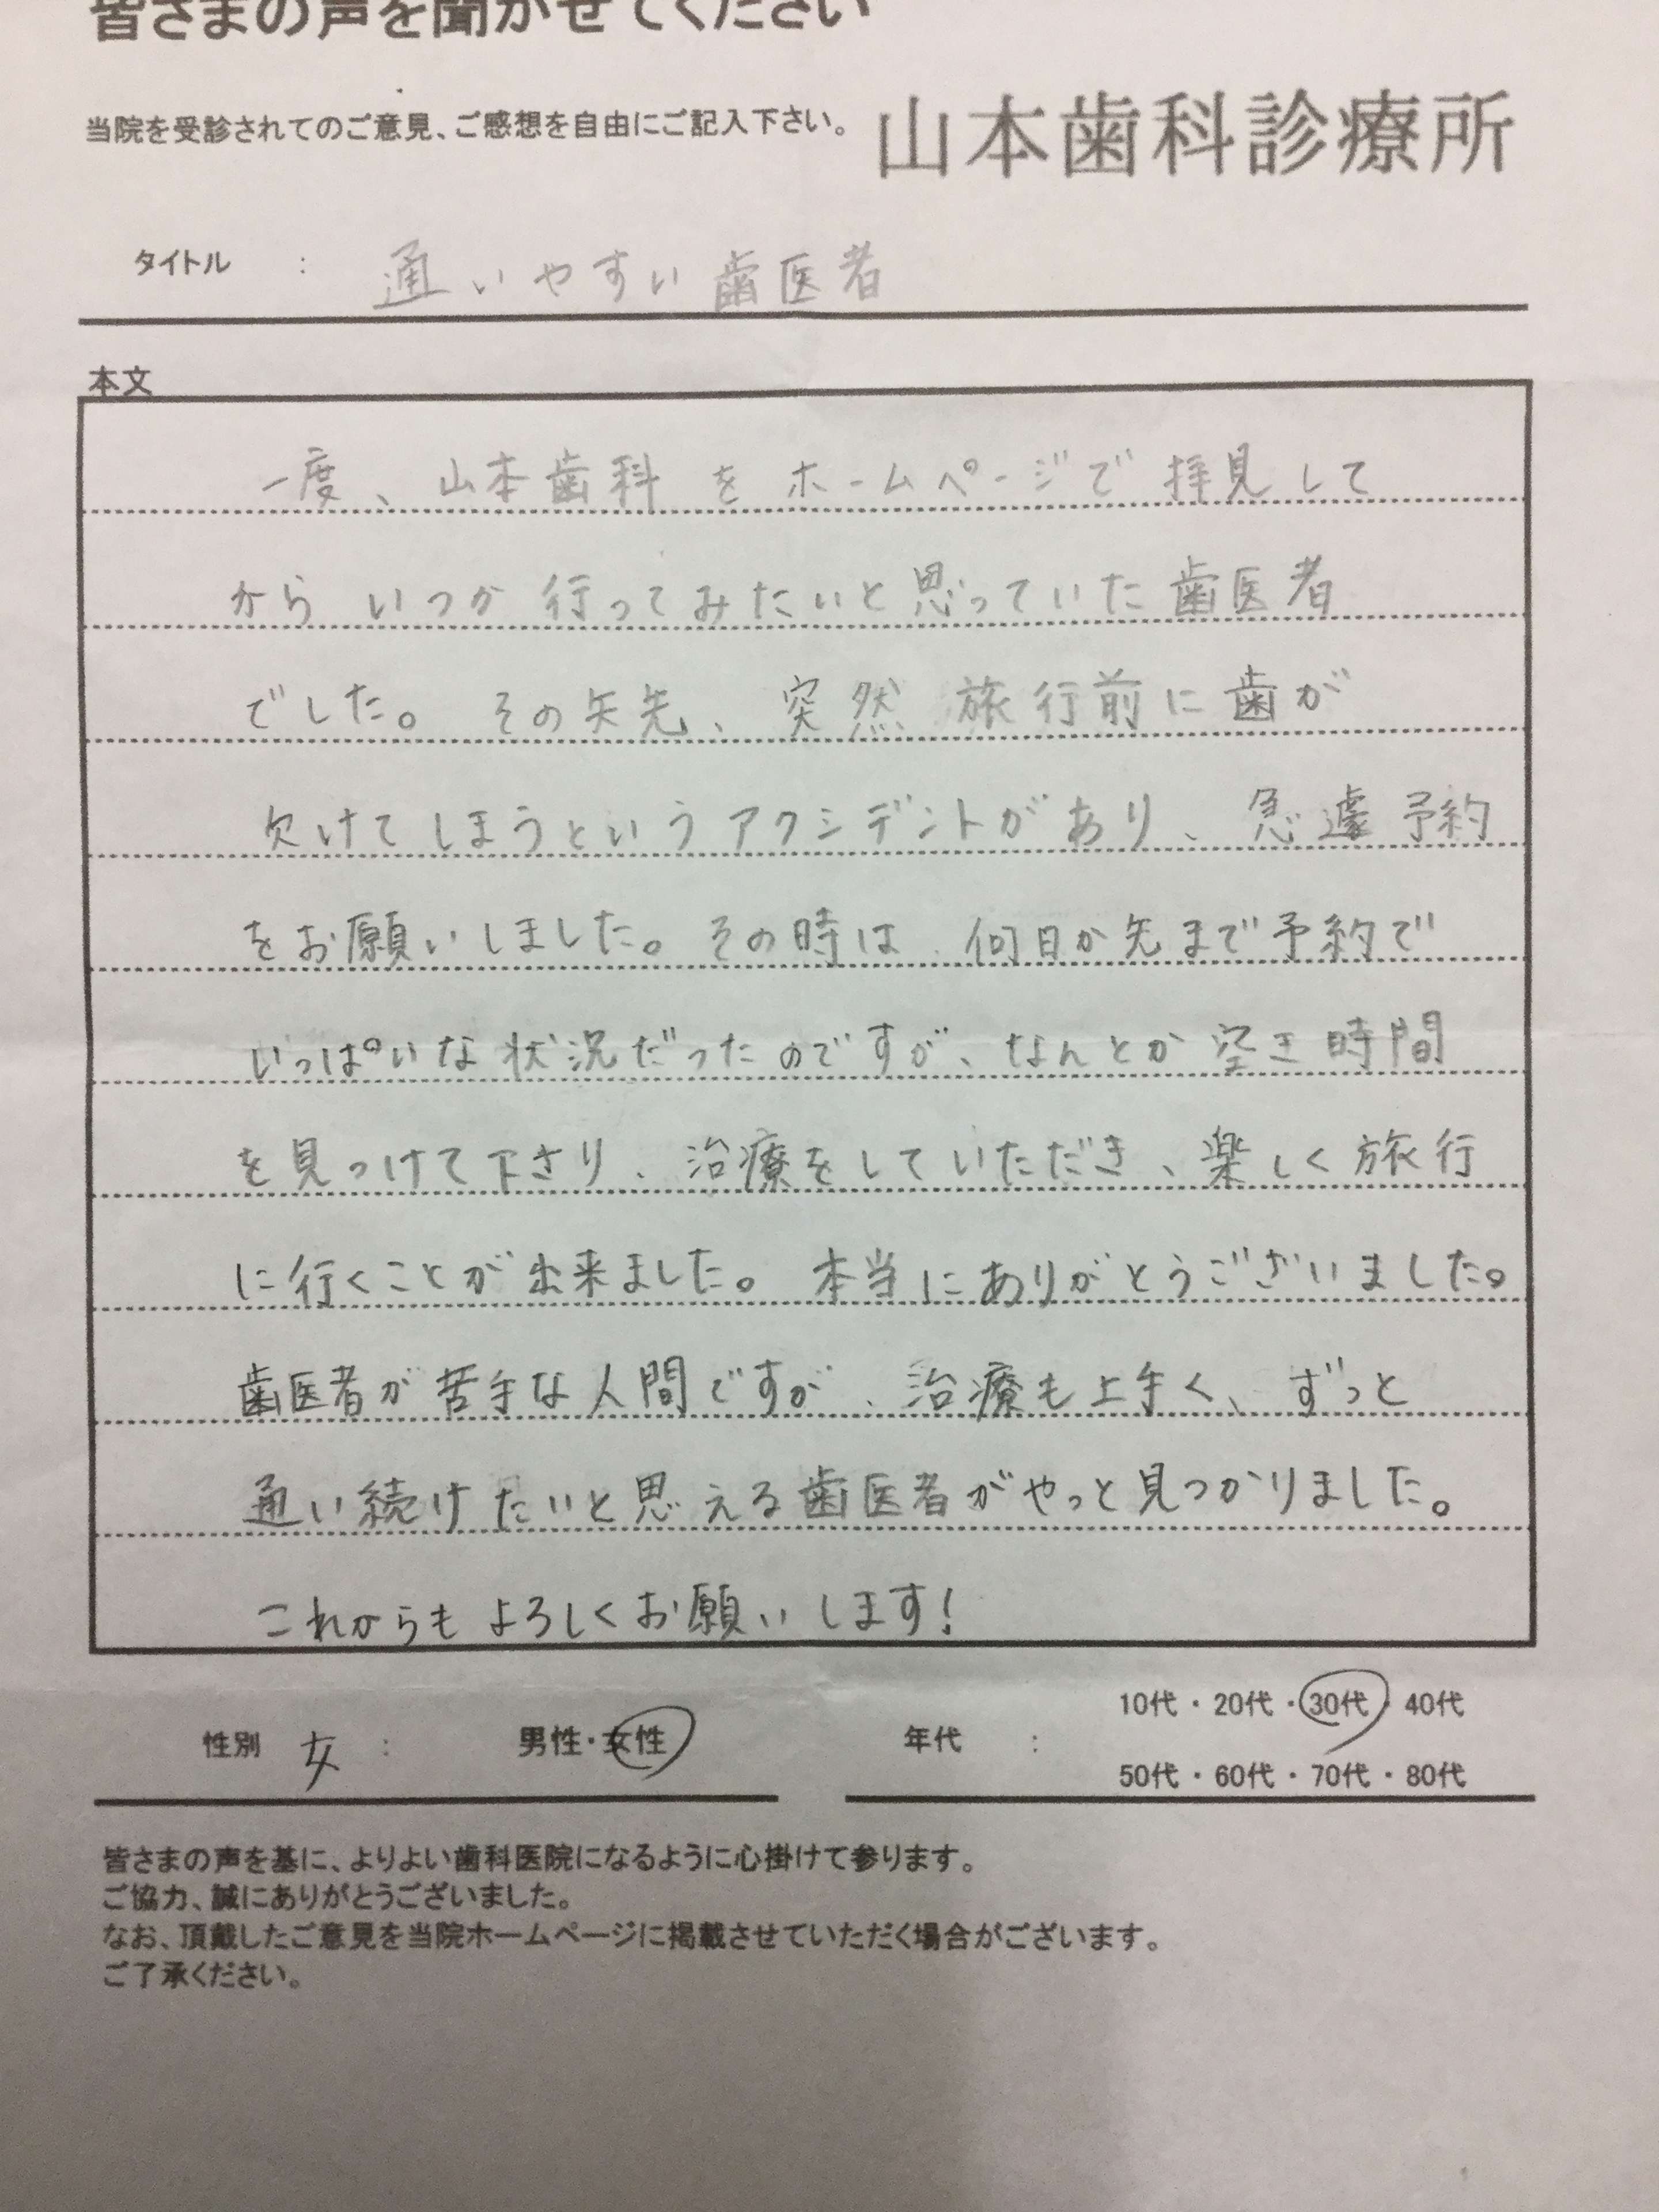 皆さまの声を聞かせてください
当院を受診されてのご意見、ご感想を自由にご記入下さい。
山本歯科診療所
タイトル : 通いやすい歯医者
本文
一度、山本歯科をホームページで拝見して
からいつか行ってみたいと思っていた歯医者
でした。その矢先、突然旅行前に歯が
欠けてしまうというアクシデントがあり、急遽予約
をお願いしました。その時は、何日か先まで予約で
いっぱいな状況だったのですが、なんとか空き時間
を見つけて下さり、治療をしていただき、楽しく旅行
に行くことが出来ました。本当にありがとうございました。
歯医者が苦手な人間ですが、治療も上手く、ずっと
通い続けたいと思える歯医者がやっと見つかりました。
これからもよろしくお願いします!
性別 女 : 男性・女性
年代 : 10代・20代・30代・40代
50代・60代・70代・80代
皆さまの声を基に、よりよい歯科医院になるように心掛けて参ります。
ご協力、誠にありがとうございました。
なお、頂戴したご意見を当院ホームページに掲載させていただく場合がございます。
ご了承ください。